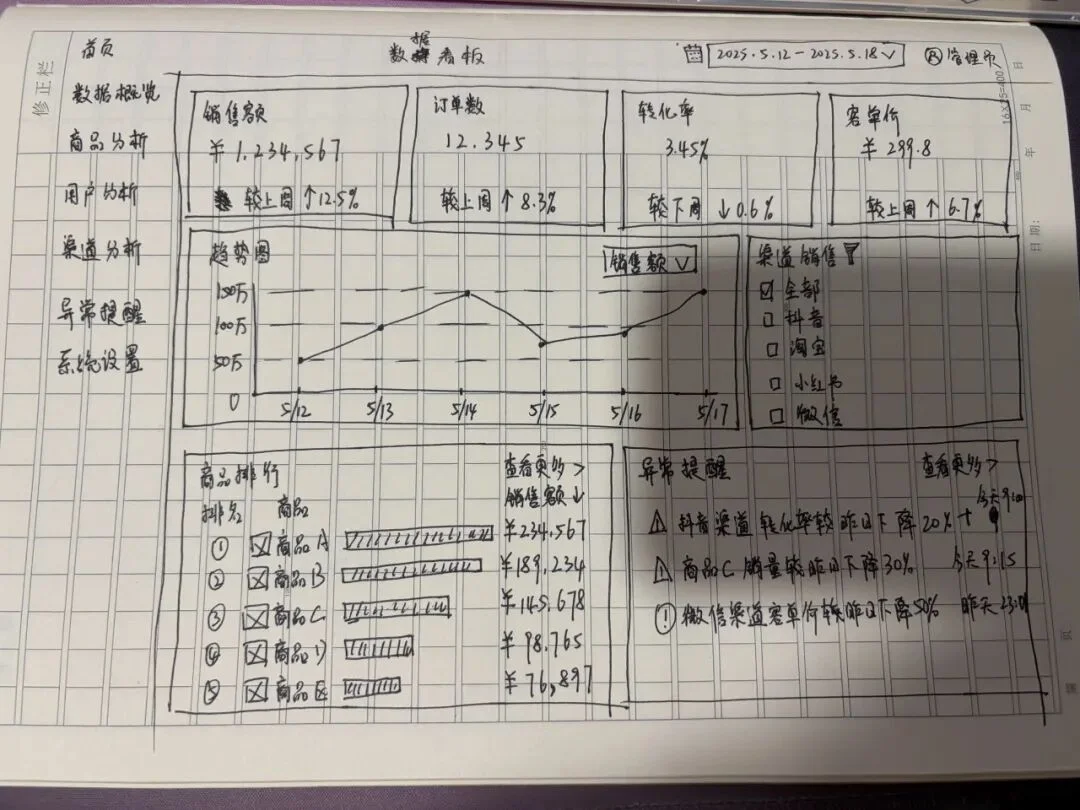 修正栏
首页
数据看板
2025.5.12-2025.5.18
管理员
数据概览
商品分析
用户分析
渠道分析
异常提醒
系统设置
销售额
¥ 1,234,567
较上周 ↑12.5%
订单数
12.345
较上周 ↑ 8.3%
转化率
3.45%
较下周 ↓0.6%
客单价
¥ 299.8
较上周 ↑ 6.7%
趋势图
销售额
150万
100万
50万
0
5/12 5/13 5/14 5/15 5/16 5/17
渠道销售
全部
抖音
淘宝
小红书
微信
商品排行
查看更多 >
排名 商品 销售额↓
① 商品A ¥234,567
② 商品B ¥189,234
③ 商品C ¥145,678
④ 商品D ¥98.765
⑤ 商品E ¥76,897
异常提醒
查看更多 >
抖音渠道转化率较昨日下降20%
商品C销量较昨日下降30% 今天9:15
微信渠道客单价较昨日下降50% 昨天
16×25=400
年 月 日
日期:
页